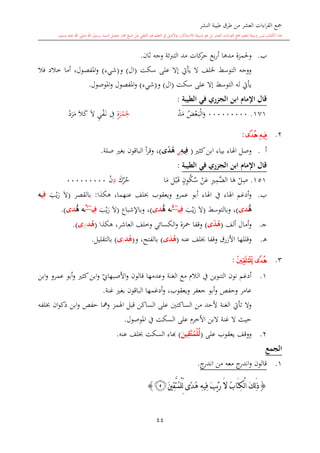 جمع القراءات العشر من طرق طيبة النشر
ب. ولحمزة مدها أربع حركات مد التبرئة وجه ثان.
ووجه التوسط لخلف لا يأتي إلا على سكت (ال) و(شيء) والمفصول، أما خلاد فلا
يأتي له التوسط إلا على سكت (ال) و(شيء) والمفصول والموصول.
قال الإمام ابن الجزري في الطيبة :
١٧١. ......... وَالْبَعْضُ مُدْ لِحَمْزَةٍ فِي نَفْيِ لَا كَلَا مَرَدْ
٢. فِيهِ هُدًى :
أ. وصل الهاء بياء ابن كثير (فِيهِي هُدًى)، وقرأ الباقون بغير صلة.
قال الإمام ابن الجزري في الطيبة :
١٥١. صِلْ هَا الضَّمِيرِ عَنْ سُكُونٍ قَبْلَ مَا حُرِّكَ دِنْ .........
ب. وأدغم الهاء في الهاء أبو عمرو ويعقوب بخلف عنهما، هكذا: بالقصر (لَا رَيْبَ فِيه
هُدى)، وبالتوسط (لَا رَيْبَ فِيه هُدى)، وبالإشباع (لَا رَيْبَ فِيه هُدى).
جـ. وأمال ألف (هُدَى) وقفا حمزة والكسائي وخلف العاشر، هكذا (هُدَى).
هـ. وقللها الأزرق وقفا بخلف عنه (هُدَى) بالفتح، و(هُدَى) بالتقليل.
٣. هُدًى لِّلْمُتَّقِينَ :
١. أدغم نون التنوين في اللام مع الغنة وعدمها قالون والأصبهانيّ وابن كثير وأبو عمرو وابن
عامر وحفص وأبو جعفر ويعقوب، وأدغمها الباقون بغير غنة.
ولا تأتي الغنة لأحد من الساكتين على الساكن قبل الهمز وهما حفص وابن ذكوان بخلفه
حيث لا غنة لابن الأخرم على السكت في الموصول.
٢. ووقف يعقوب على (لِّلْمُتَّقِينَ) بهاء السكت بخلف عنه.
الجمع
١. قالون واندرج معه من اندرج.
﴿ ذَٰلِكَ الْكِتَابُ لَا رَيْبَ فِيهِ هُدًى لِّلْمُتَّقِينَ ٢ ﴾
11